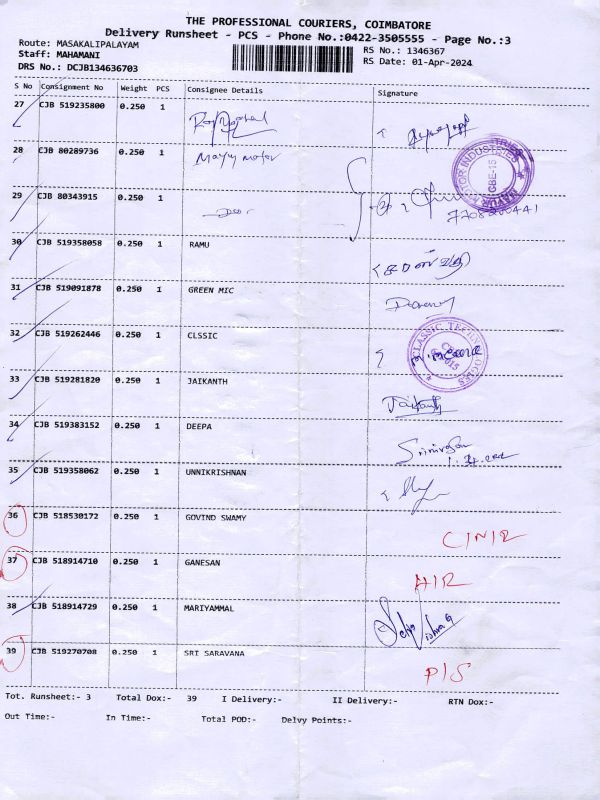 THE PROFESSIONAL COURIERS, COIMBATORE
Delivery Runsheet - PCS - Phone No.:0422-3505555 - Page No.:3
Route: MASAKALIPALAYAM
Staff: MAHAMANI RS No.: 1346367
DRS No.: DCJB134636703 RS Date: 01-Apr-2024
S No Consignment No Weight PCS Consignee Details Signature
27 CJB 519235800 0.250 1
28 CJB 80289736 0.250 1 Mayur motor
MAYUR MOTOR INDUSTRIES
CBE-15
29 CJB 80343915 0.250 1
30 CJB 519358058 0.250 1 RAMU சரஸ்வதி
31 CJB 519091878 0.250 1 GREEN MIC
32 CJB 519262446 0.250 1 CLSSIC
CLASSIC TECHNOLOGIES
33 CJB 519281820 0.250 1 JAIKANTH Jaikanth
34 CJB 519383152 0.250 1 DEEPA Srinivasan
35 CJB 519358062 0.250 1 UNNIKRISHNAN
36 CJB 518530172 0.250 1 GOVIND SWAMY C/N/R
37 CJB 518914710 0.250 1 GANESAN
38 CJB 518914729 0.250 1 MARIYAMMAL
39 CJB 519270708 0.250 1 SRI SARAVANA P/S
Tot. Runsheet:- 3 Total Dox:- 39 I Delivery:- II Delivery:- RTN Dox:-
Out Time:- In Time:- Total POD:- Delvy Points:-